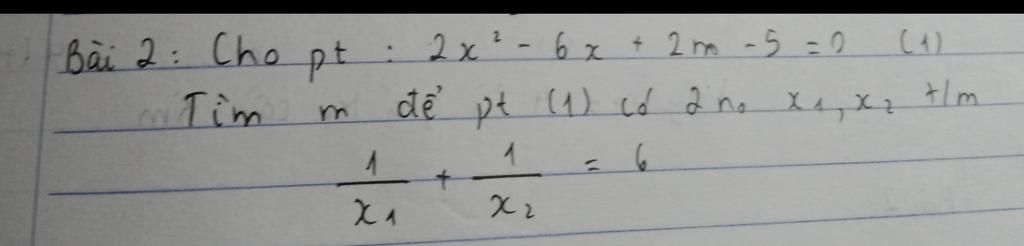 Bài 2 : Cho pt : 2x² - 6x + 2m - 5 = 0 (1)
Tìm m để pt (1) có 2 n₀ x₁, x₂ t/m
1/x₁ + 1/x₂ = 6